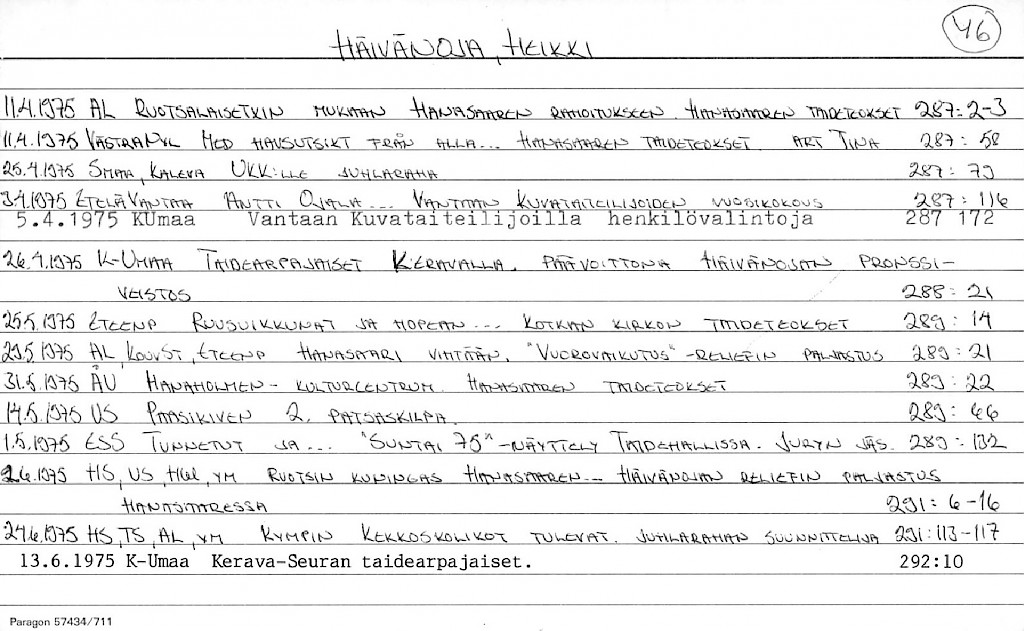 46
HÄIVÄNOJA, HEIKKI
11.4.1975 AL RUOTSALAISETKIN MUKAAN HANASAAREN RAHOITUKSEEN. HANASAAREN TAIDETEOKSET 287:2-3
11.4.1975 VÄSTRANYL MED HAVSUTSIKT FRÅN ALLA... HANASAAREN TAIDETEOKSET. ART TINA 287:58
25.4.1975 SMAA, KALEVA UKK:LLE JUHLARAHA 287:79
3.4.1975 ETELÄVANTAA ANTTI OJALA... VANTAAN KUVATAITEILIJOIDEN VUOSIKOKOUS 287:116
5.4.1975 KUmaa Vantaan Kuvataiteilijoilla henkilövalintoja 287 172
26.4.1975 K-UMAA TAIDEARPAJAISET KERAVALLA. PÄÄVOITTONA HÄIVÄNOJAN PRONSSI-
VEISTOS 288:21
25.5.1975 ETEENP RUUSUIKKUNAT JA HOPEAN... KOTKAN KIRKON TAIDETEOKSET 289:14
29.5.1975 AL, KOUVST, ETEENP HANASAARI VIHITÄÄN. "VUOROVAIKUTUS"-RELIEFIN PALJASTUS 289:21
31.5.1975 ÅU HANAHOLMEN-KULTURCENTRUM. HANASAAREN TAIDETEOKSET 289:22
14.5.1975 US PAASIKIVEN 2. PATSASKILPA. 289:66
1.5.1975 ESS TUNNETUT JA... "SUNTAI 75"-NÄYTTELY TAIDEHALLISSA. JURYN JÄS. 289:132
2.6.1975 HS, US, HBL, YM RUOTSIN KUNINGAS HANASAAREN... HÄIVÄNOJAN RELIEFIN PALJASTUS
HANASAARESSA 291:6-16
24.6.1975 HS, TS, AL, YM KYMPIN KEKKOSKOLIKOT TULEVAT. JUHLARAHAN SUUNNITTELIJA 291:113-117
13.6.1975 K-Umaa Kerava-Seuran taidearpajaiset. 292:10
Paragon 57434/711